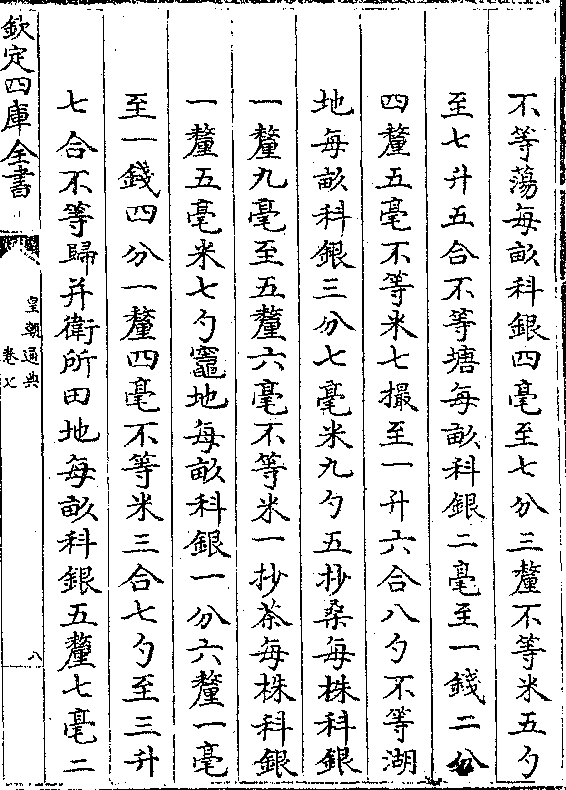 不等蕩每畝科銀四毫至七分三釐不等米五勺
至七升五合不等塘每畝科銀二毫至一錢二分
四釐五毫不等米七撮至一升六合八勺不等湖
地每畝科銀三分七毫米九勺五抄桑每株科銀
一釐九毫至五釐六毫不等米一抄茶每株科銀
一釐五毫米七勺竈地每畝科銀一分六釐一毫
至一錢四分一釐四毫不等米三合七勺至三升
七合不等歸并衛所田地每畝科銀五釐七毫二
欽定四庫全書
皇朝通典
卷七
八